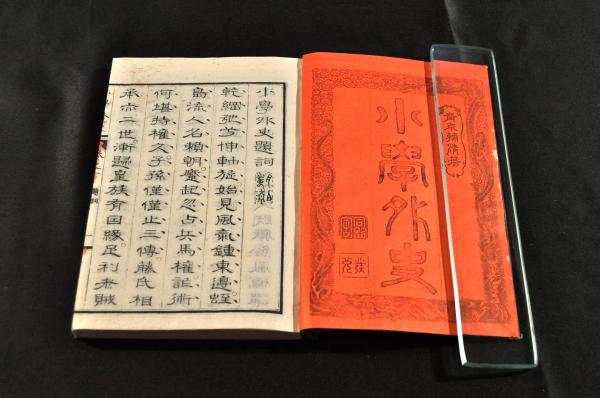 青木輔清著
小學外史
小學外史題詞
乾綱弛兮坤軸旋始見風氣鍾東邊蛭
島流人名頼朝蹙起忽占兵馬權詐術
何堪持權久子孫僅僅止三傳藤氏相
承亦二世漸歸皇族有因縁足利老賊